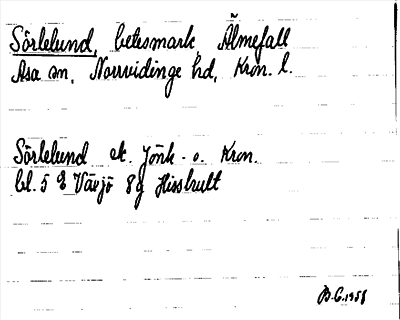 Sörlelund, betesmark, Älmefall
Asa sn, Norrvidinge hd, Kron. l.
Sörlelund ek. Jönk. o. Kron.
bl. 5 E Växjö 8g Hisshult
B.G. 1958